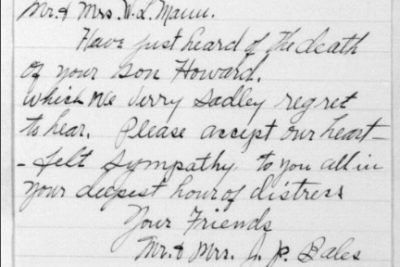 Mr. & Mrs. W. L. Mann.
Have just heard of the death
of your son Howard.
which we verry sadley regret
to hear. Please accept our heart-
-felt sympathy, to you all in
your deepest hour of distress
Your Friends
Mr. & Mrs. J. P. Bales